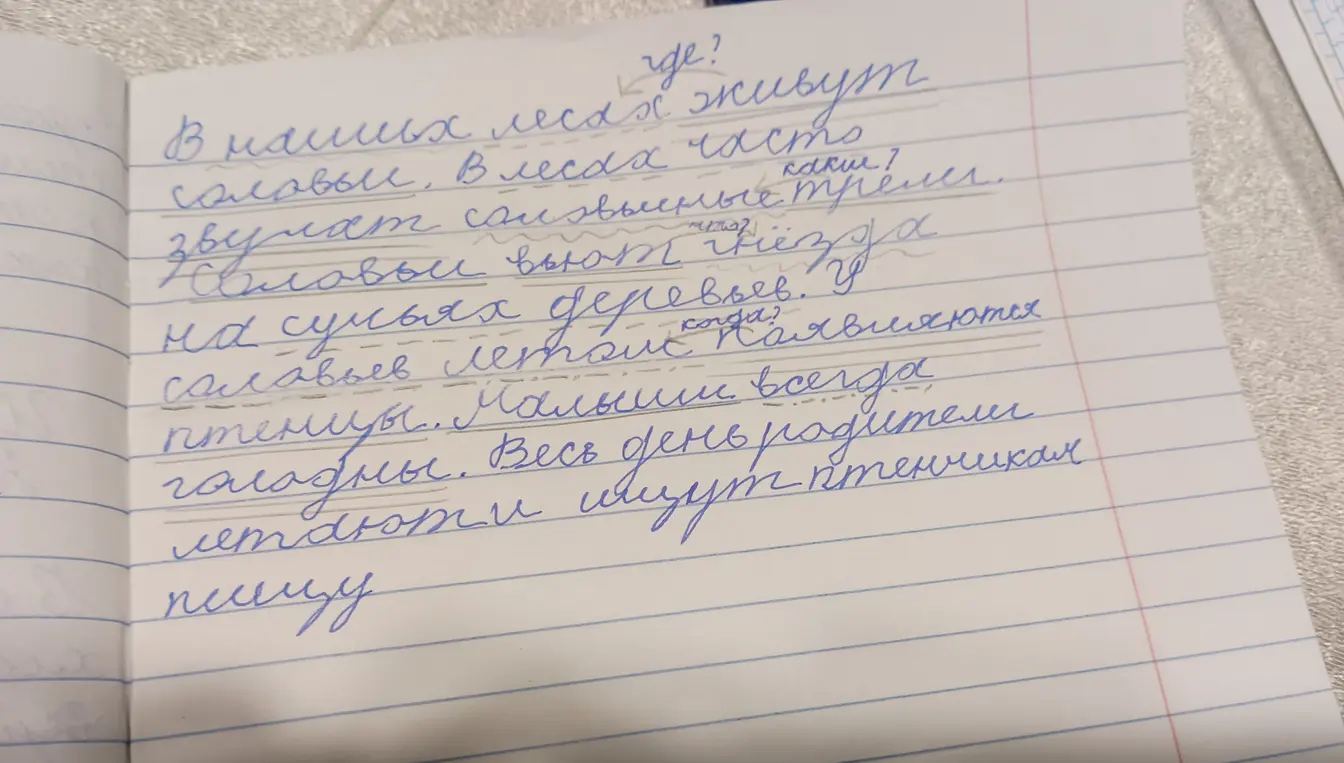 где?
В наших лесах живут
соловьи. В лесах часто
какие?
звучат соловьиные трели.
что?
Соловьи вьют гнёзда
на сучьях деревьев. У
когда?
соловьев летом появляются
птенцы. Малыши всегда
голодны. Весь день родители
летают и ищут птенчикам
пищу